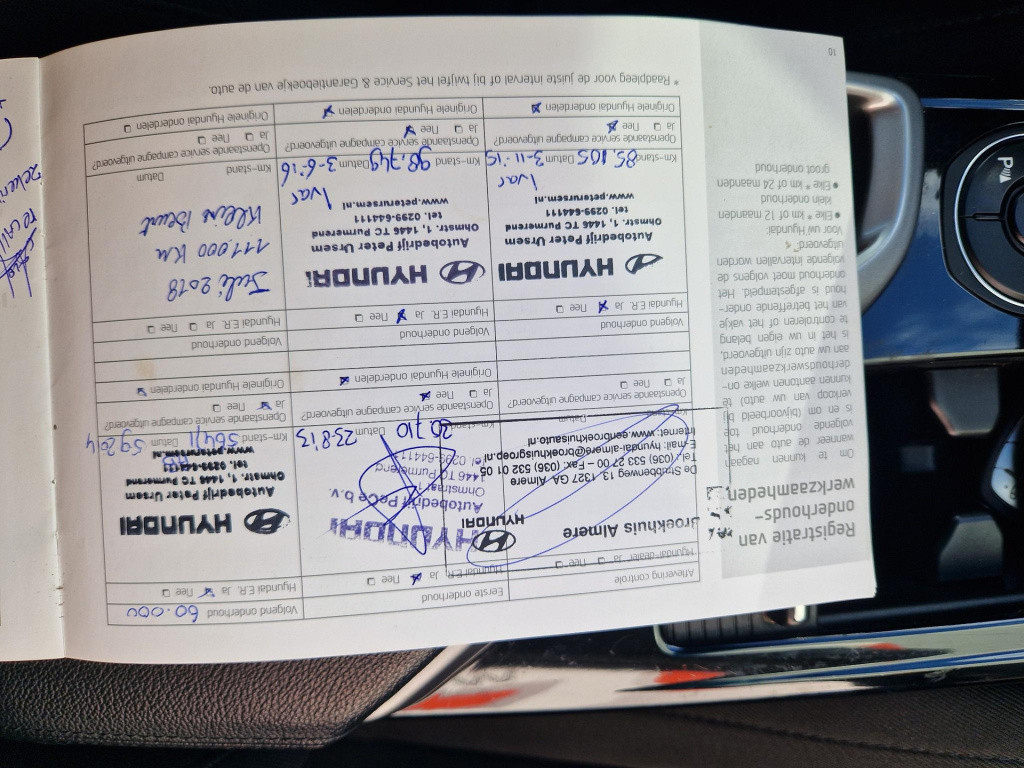 Registratie van
onderhouds-
werkzaamheden
Om te kunnen nagaan
wanneer de auto aan het
volgende onderhoud toe
is en om (bijvoorbeeld bij
verkoop van uw auto) te
kunnen aantonen welke on-
derhoudswerkzaamheden
aan uw auto zijn uitgevoerd,
is het in uw eigen belang
te controleren of het vakje
van het betreffende onder-
houd is afgestempeld. Het
onderhoud moet volgens de
volgende intervallen worden
uitgevoerd
voor uw Hyundai:
• Elke * km of 12 maanden
klein onderhoud
• Elke * km of 24 maanden
groot onderhoud
Aflevering controle
Hyundai-dealer Ja Nee
Broekhuis Almere
HYUNDAI
De Strubbenweg 13, 1327 GA Almere
Tel. (036) 533 27 00 – Fax: (036) 532 01 05
E-mail: hyundai-almere@broekhuisgroep.nl
Internet: www.eenbroekhuisauto.nl
Km-stand Datum
Openstaande campagne service uitgevoerd?
Ja Nee
Eerste onderhoud
Hyundai E.R. Ja Nee
HYUNDAI
Autobedrijf PeCe b.v.
Ohmstraat 1
1446 TC Purmerend
Tel 0299-644111
Km-stand 20.710 Datum 23-8-'13
Openstaande campagne service uitgevoerd?
Ja Nee
Originele Hyundai onderdelen
Volgend onderhoud 60.000
Hyundai E.R. Ja Nee
HYUNDAI
Autobedrijf Peter Ursem
Ohmstr. 1, 1446 TC Purmerend
tel. 0299-644111
www.peterursem.nl
Km-stand 56471 Datum 5-9-2014
Openstaande campagne service uitgevoerd?
Ja Nee
Originele Hyundai onderdelen
Volgend onderhoud
Hyundai E.R. Ja Nee
HYUNDAI
Autobedrijf Peter Ursem
Ohmstr. 1, 1446 TC Purmerend
tel. 0299-644111
www.peterursem.nl
Ivar
Km-stand 85.105 Datum 3-11-'15
Openstaande campagne service uitgevoerd?
Ja Nee
Originele Hyundai onderdelen
Volgend onderhoud
Hyundai E.R. Ja Nee
HYUNDAI
Autobedrijf Peter Ursem
Ohmstr. 1, 1446 TC Purmerend
tel. 0299-644111
www.peterursem.nl
Ivar
Km-stand 98.749 Datum 3-6-'16
Openstaande service campagne uitgevoerd?
Ja Nee
Originele Hyundai onderdelen
Volgend onderhoud
Hyundai E.R. Ja Nee
Juli 2018
111.000 Km
Kleine Beurt
Km-stand Datum
Openstaande service campagne uitgevoerd?
Ja Nee
Originele Hyundai onderdelen
* Raadpleeg voor de juiste interval of bij twijfel het Service & Garantieboekje van de auto.
10